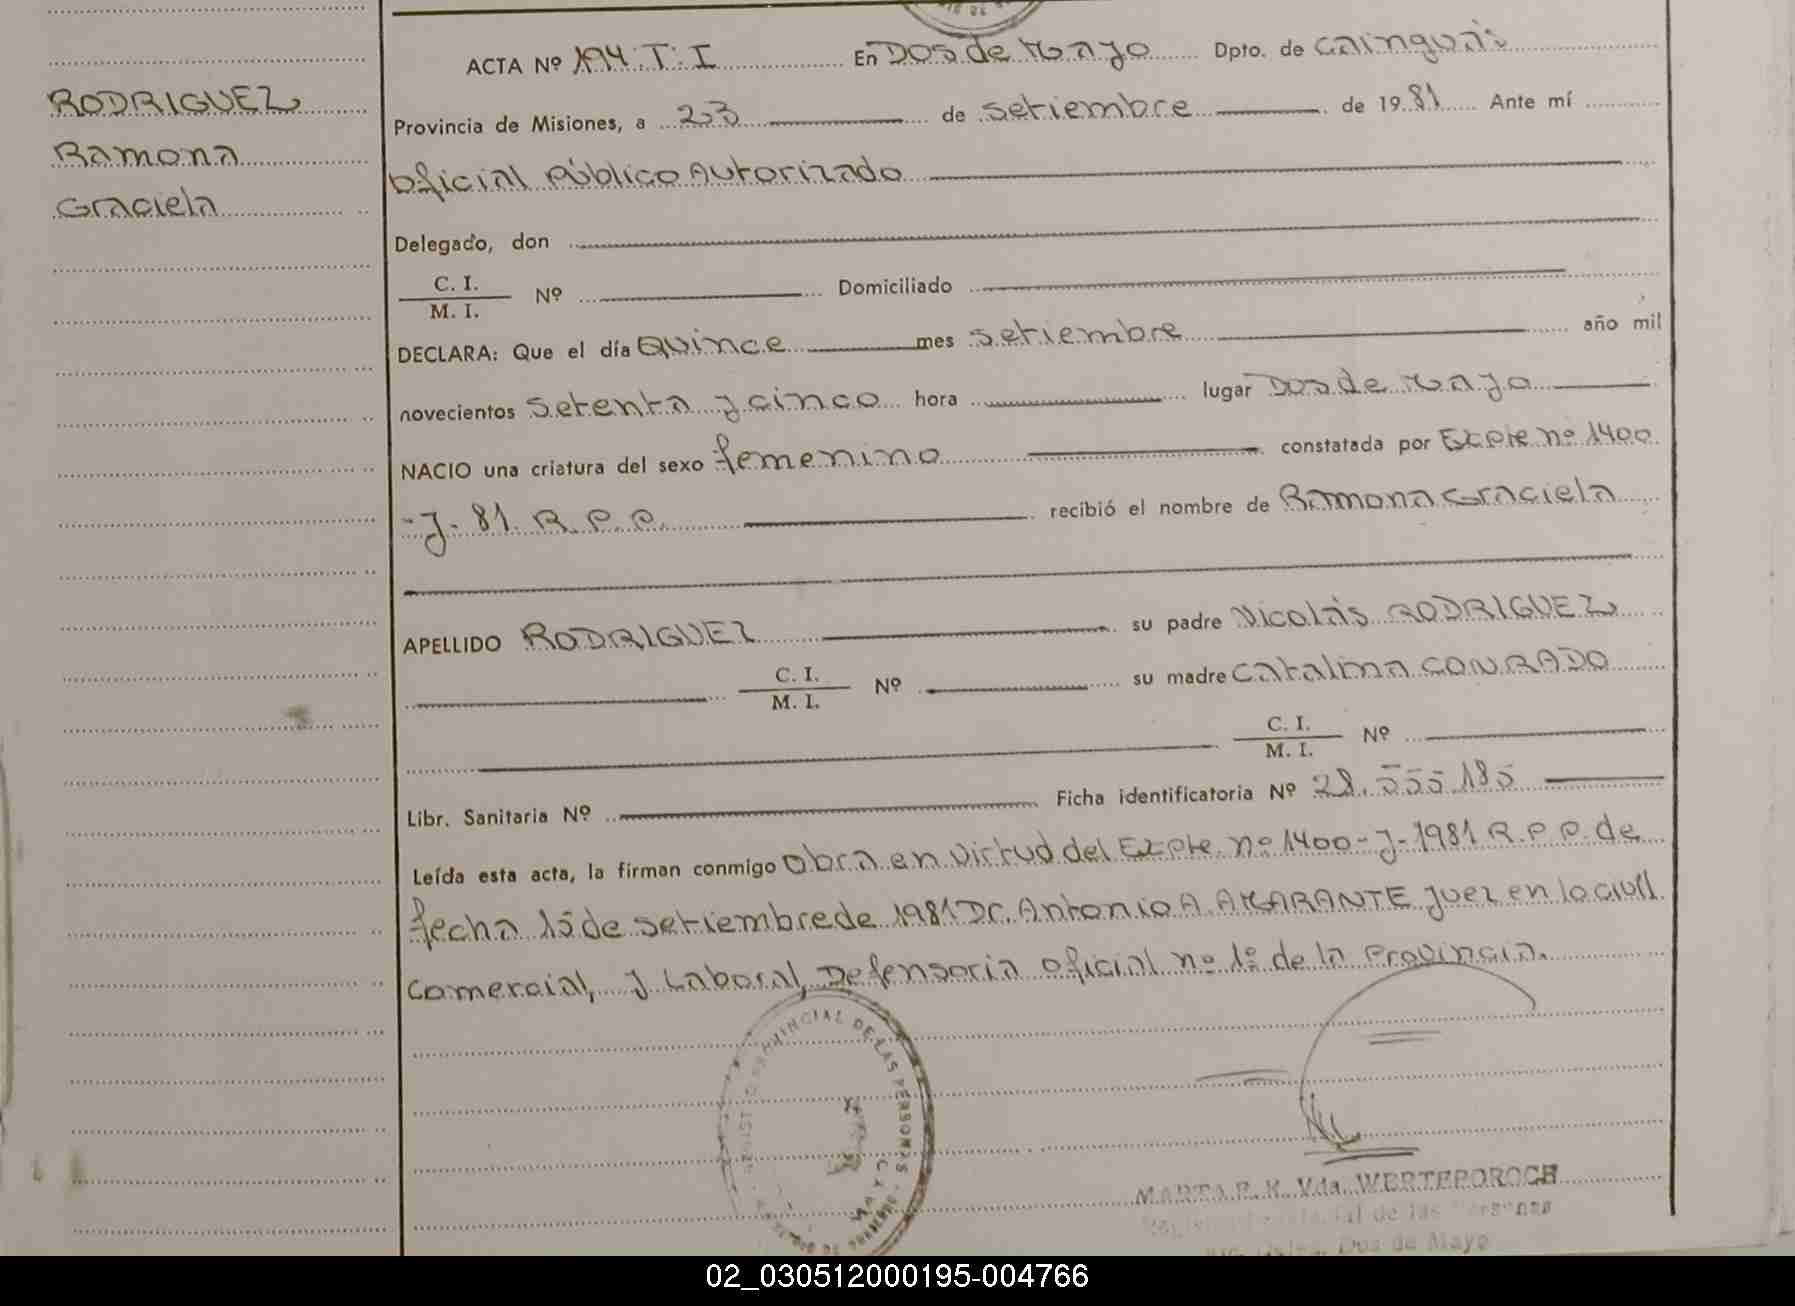 RODRIGUEZ
Ramona
Graciela
ACTA Nº 194. T: I En Dos de Mayo Dpto. de Cainguás
Provincia de Misiones, a 23 de setiembre de 1981 Ante mí
Oficial Público Autorizado
Delegado, don
C. I.
M. I. Nº Domiciliado
DECLARA: Que el día Quince mes setiembre año mil
novecientos setenta y cinco hora lugar Dos de Mayo
NACIO una criatura del sexo femenino constatada por Expte nº 1400
-J- 81 R.P.P. recibió el nombre de Ramona Graciela
APELLIDO RODRIGUEZ su padre Nicolás RODRIGUEZ
C. I.
M. I. Nº su madre Catalina CONRADO
C. I.
M. I. Nº
Libr. Sanitaria Nº Ficha identificatoria Nº 28.555.185
Leída esta acta, la firman conmigo Obra en virtud del Expte nº 1400-J-1981 R.P.P. de
fecha 15 de setiembre de 1981 Dr. Antonio A. AMARANTE Juez en lo civil
Comercial, y Laboral, Defensoria Oficial nº 1º de la Provincia.
PROVINCIAL DE LAS PERSONAS
Vda. WERTEPOROCH
Dos de Mayo
02_030512000195-004766